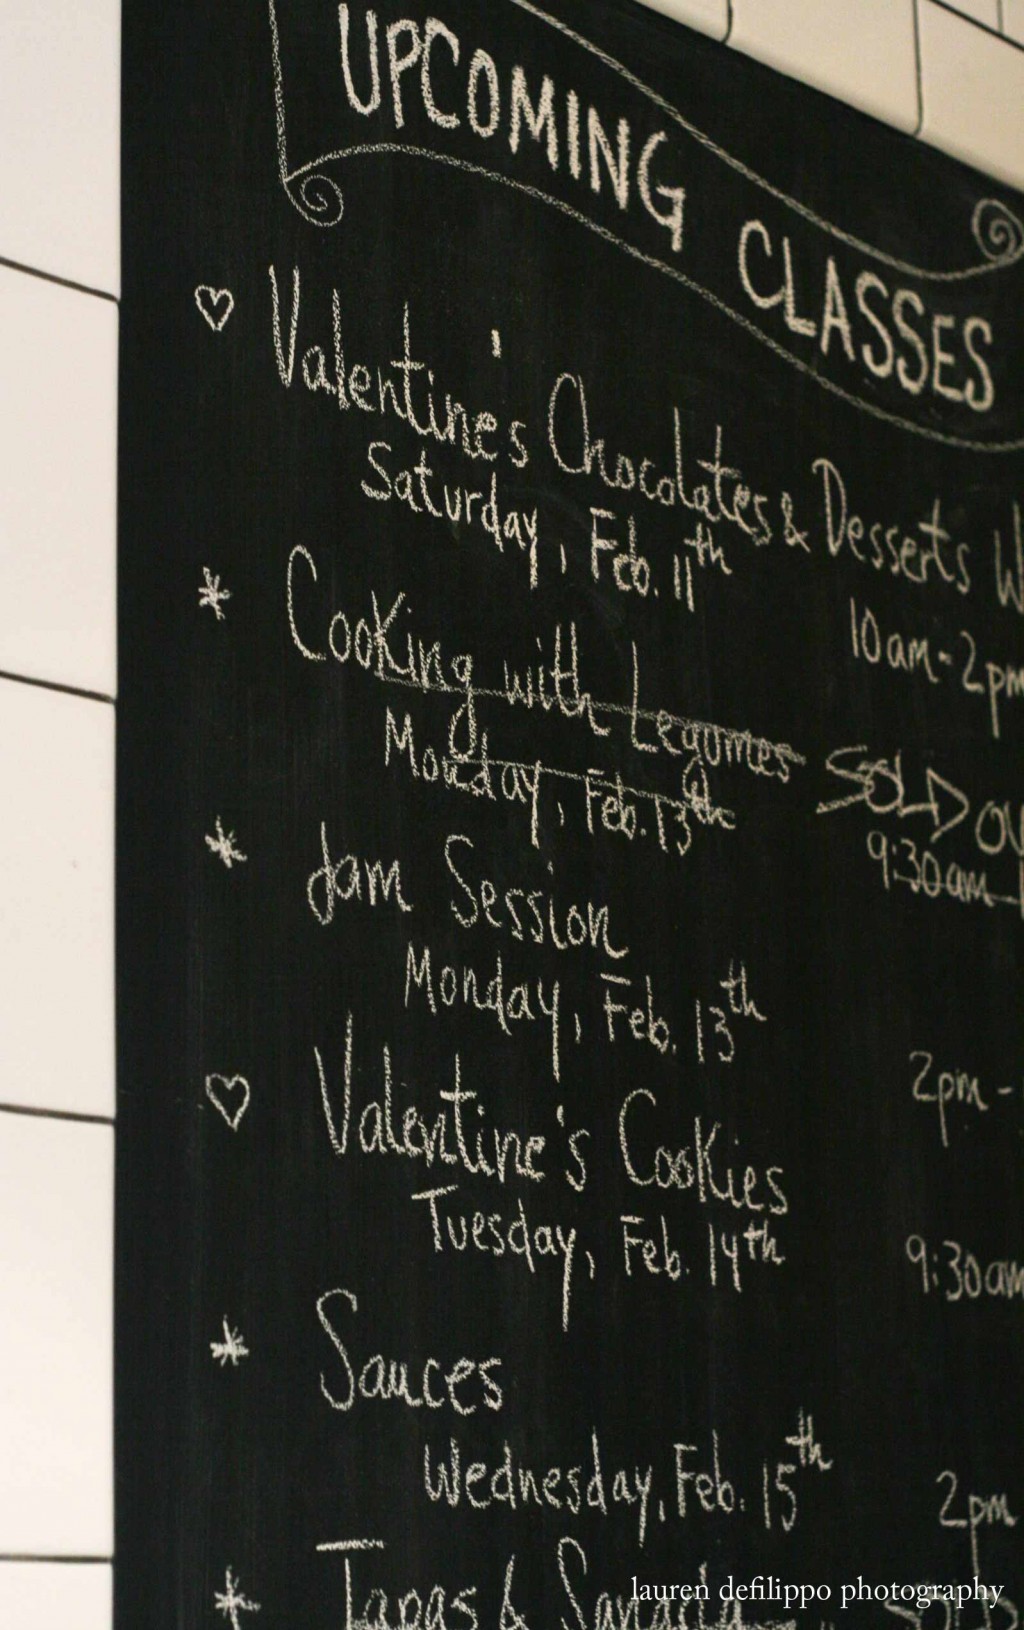 UPCOMING CLASSES
♡ Valentine's Chocolates & Desserts W
Saturday, Feb. 11th 10am-2pm
* Cooking with Legumes SOLD OU
Monday, Feb. 13th 9:30am-
* Jam Session
Monday, Feb. 13th 2pm-
♡ Valentine's Cookies
Tuesday, Feb. 14th 9:30am
* Sauces
Wednesday, Feb. 15th 2pm
* Tapas & SOLD
lauren defilippo photography